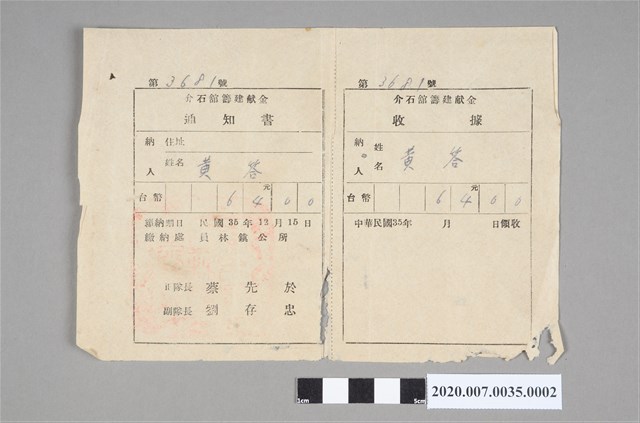 第3681號
介石館籌建献金
通知書
納人
住址
姓名 黄答
台幣 64元00
繳納期日 民國35年12月15日
繳納處 員林鎮公所
隊長 蔡先於
副隊長 劉存忠
第3681號
介石館籌建献金
收據
納人
姓名 黄答
台幣 64元00
中華民國35年 月 日領收
1cm 5cm
2020.007.0035.0002